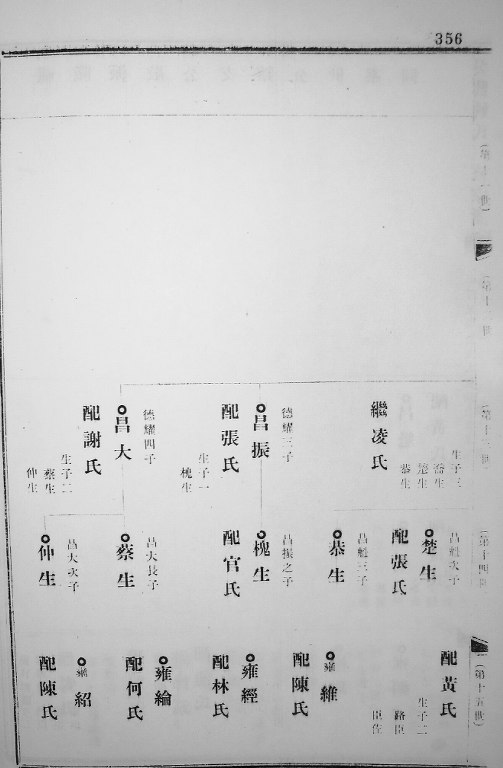 356
(第十三世)
繼凌氏
生子三
喬生
楚生
恭生
昌振
德耀三子
配張氏
生子一
槐生
昌大
德耀四子
配謝氏
生子二
蔡生
仲生
(第十四世)
楚生
昌魁次子
配張氏
恭生
昌魁三子
槐生
昌振之子
配官氏
蔡生
昌大長子
仲生
昌大次子
(第十五世)
配黃氏
生子二
路臣
臣佐
雍維
配陳氏
雍經
配林氏
雍綸
配何氏
雍紹
配陳氏